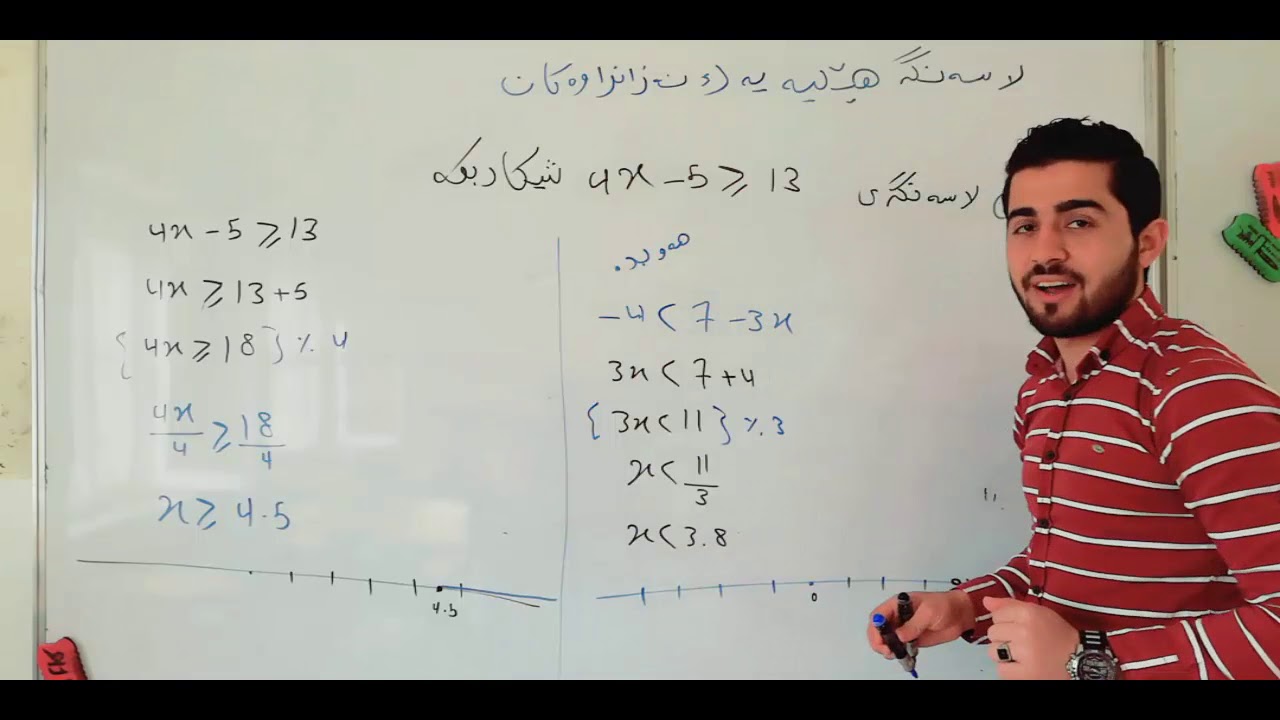 لاسەنگە هێڵیە یەک نەزانراوەکان
لاسەنگەی 4x - 5 ≥ 13 شیکاربکە
4x - 5 ≥ 13
4x ≥ 13 + 5
{4x ≥ 18} ٪ 4
4x/4 ≥ 18/4
x ≥ 4.5
4.5
هەوبدە
-4 < 7 - 3x
3x < 7 + 4
{3x < 11} ٪ 3
x < 11/3
x < 3.8
0